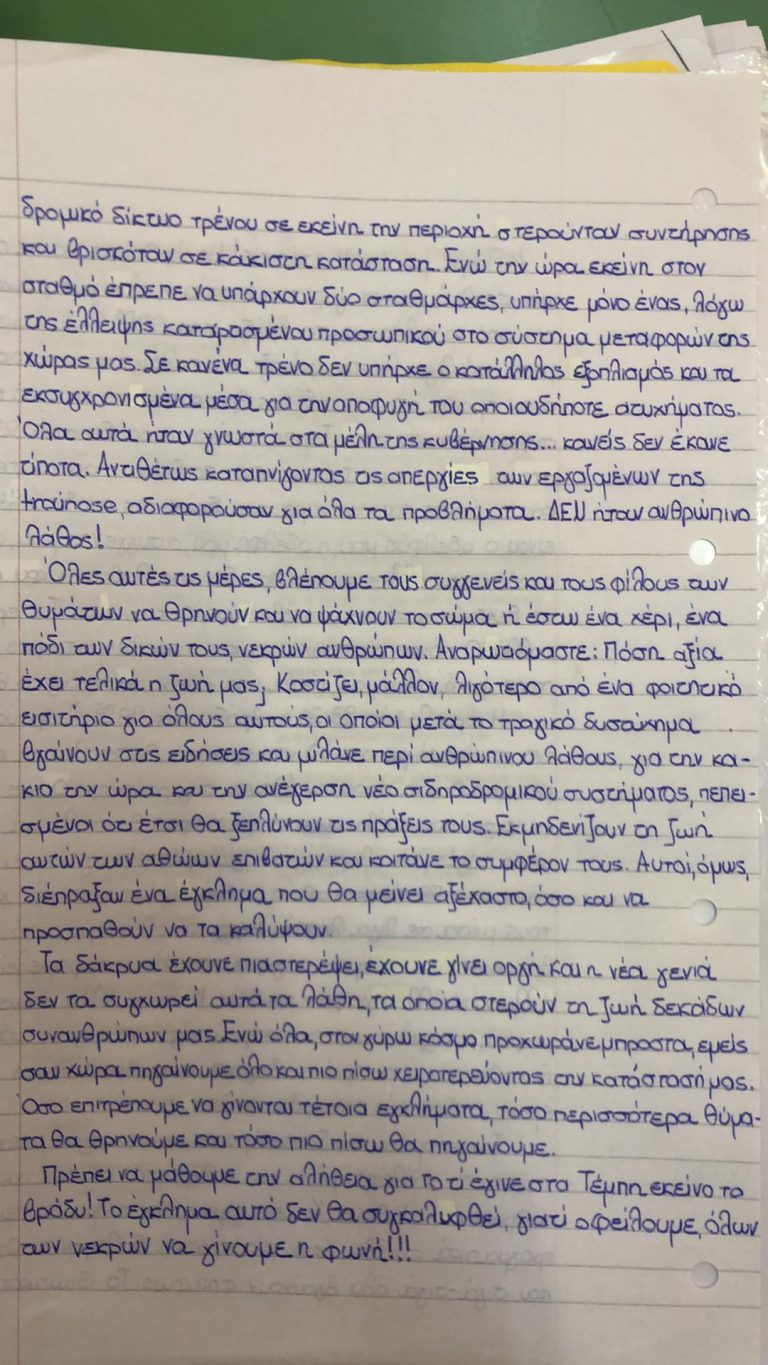 δρομικό δίκτυο τρένου σε εκείνη την περιοχή στερούνταν συντήρησης
και βρισκόταν σε κάκιστη κατάσταση. Ενώ την ώρα εκείνη στον
σταθμό έπρεπε να υπάρχουν δύο σταθμάρχες, υπήρχε μόνο ένας, λόγω
της έλλειψης καταρασμένου προσωπικού στο σύστημα μεταφορών της
χώρας μας. Σε κανένα τρένο δεν υπήρχε ο κατάλληλος εξοπλισμός και τα
εκσυγχρονισμένα μέσα για την αποφυγή του οποιουδήποτε ατυχήματος.
Όλα αυτά ήταν γνωστά στα μέλη της κυβέρνησης... κανείς δεν έκανε
τίποτα. Αντιθέτως καταπνίγοντας τις απεργίες των εργαζομένων της
trainose, αδιαφορούσαν για όλα τα προβλήματα. ΔΕΝ ήταν ανθρώπινο
λάθος!
Όλες αυτές τις μέρες, βλέπουμε τους συγγενείς και τους φίλους των
θυμάτων να θρηνούν και να ψάχνουν το σώμα ή έστω ένα χέρι, ένα
πόδι των δικών τους, νεκρών ανθρώπων. Αναρωτιόμαστε: Πόση αξία
έχει τελικά η ζωή μας; Κοστίζει, μάλλον, λιγότερο από ένα φοιτητικό
εισιτήριο για όλους αυτούς, οι οποίοι μετά το τραγικό δυστύχημα
βγαίνουν στις ειδήσεις και μιλάνε περί ανθρώπινου λάθους, για την κα-
κιά την ώρα και την ανέγερση νέο σιδηροδρομικού συστήματος, πεπει-
σμένοι ότι έτσι θα ξεπλύνουν τις πράξεις τους. Εκμηδενίζουν τη ζωή
αυτών των αθώων επιβατών και κοιτάνε το συμφέρον τους. Αυτοί, όμως,
διέπραξαν ένα έγκλημα που θα μείνει αξέχαστο, όσο και να
προσπαθούν να το καλύψουν.
Τα δάκρυα έχουνε πια στερέψει, έχουνε γίνει οργή και η νέα γενιά
δεν τα συγχωρεί αυτά τα λάθη, τα οποία στερούν τη ζωή δεκάδων
συνανθρώπων μας. Ενώ όλα, στον γύρω κόσμο προχωράνε μπροστα, εμείς
σαν χώρα πηγαίνουμε όλο και πιο πίσω χειροτερεύοντας την κατάστασή μας.
Όσο επιτρέπουμε να γίνονται τέτοια εγκλήματα, τόσο περισσότερα θύμα-
τα θα θρηνούμε και τόσο πιο πίσω θα πηγαίνουμε.
Πρέπει να μάθουμε την αλήθεια για το τί έγινε στα Τέμπη εκείνο το
βράδυ! Το έγκλημα αυτό δεν θα συγκαλυφθεί, γιατί οφείλουμε, όλων
των νεκρών να γίνουμε η φωνή!!!